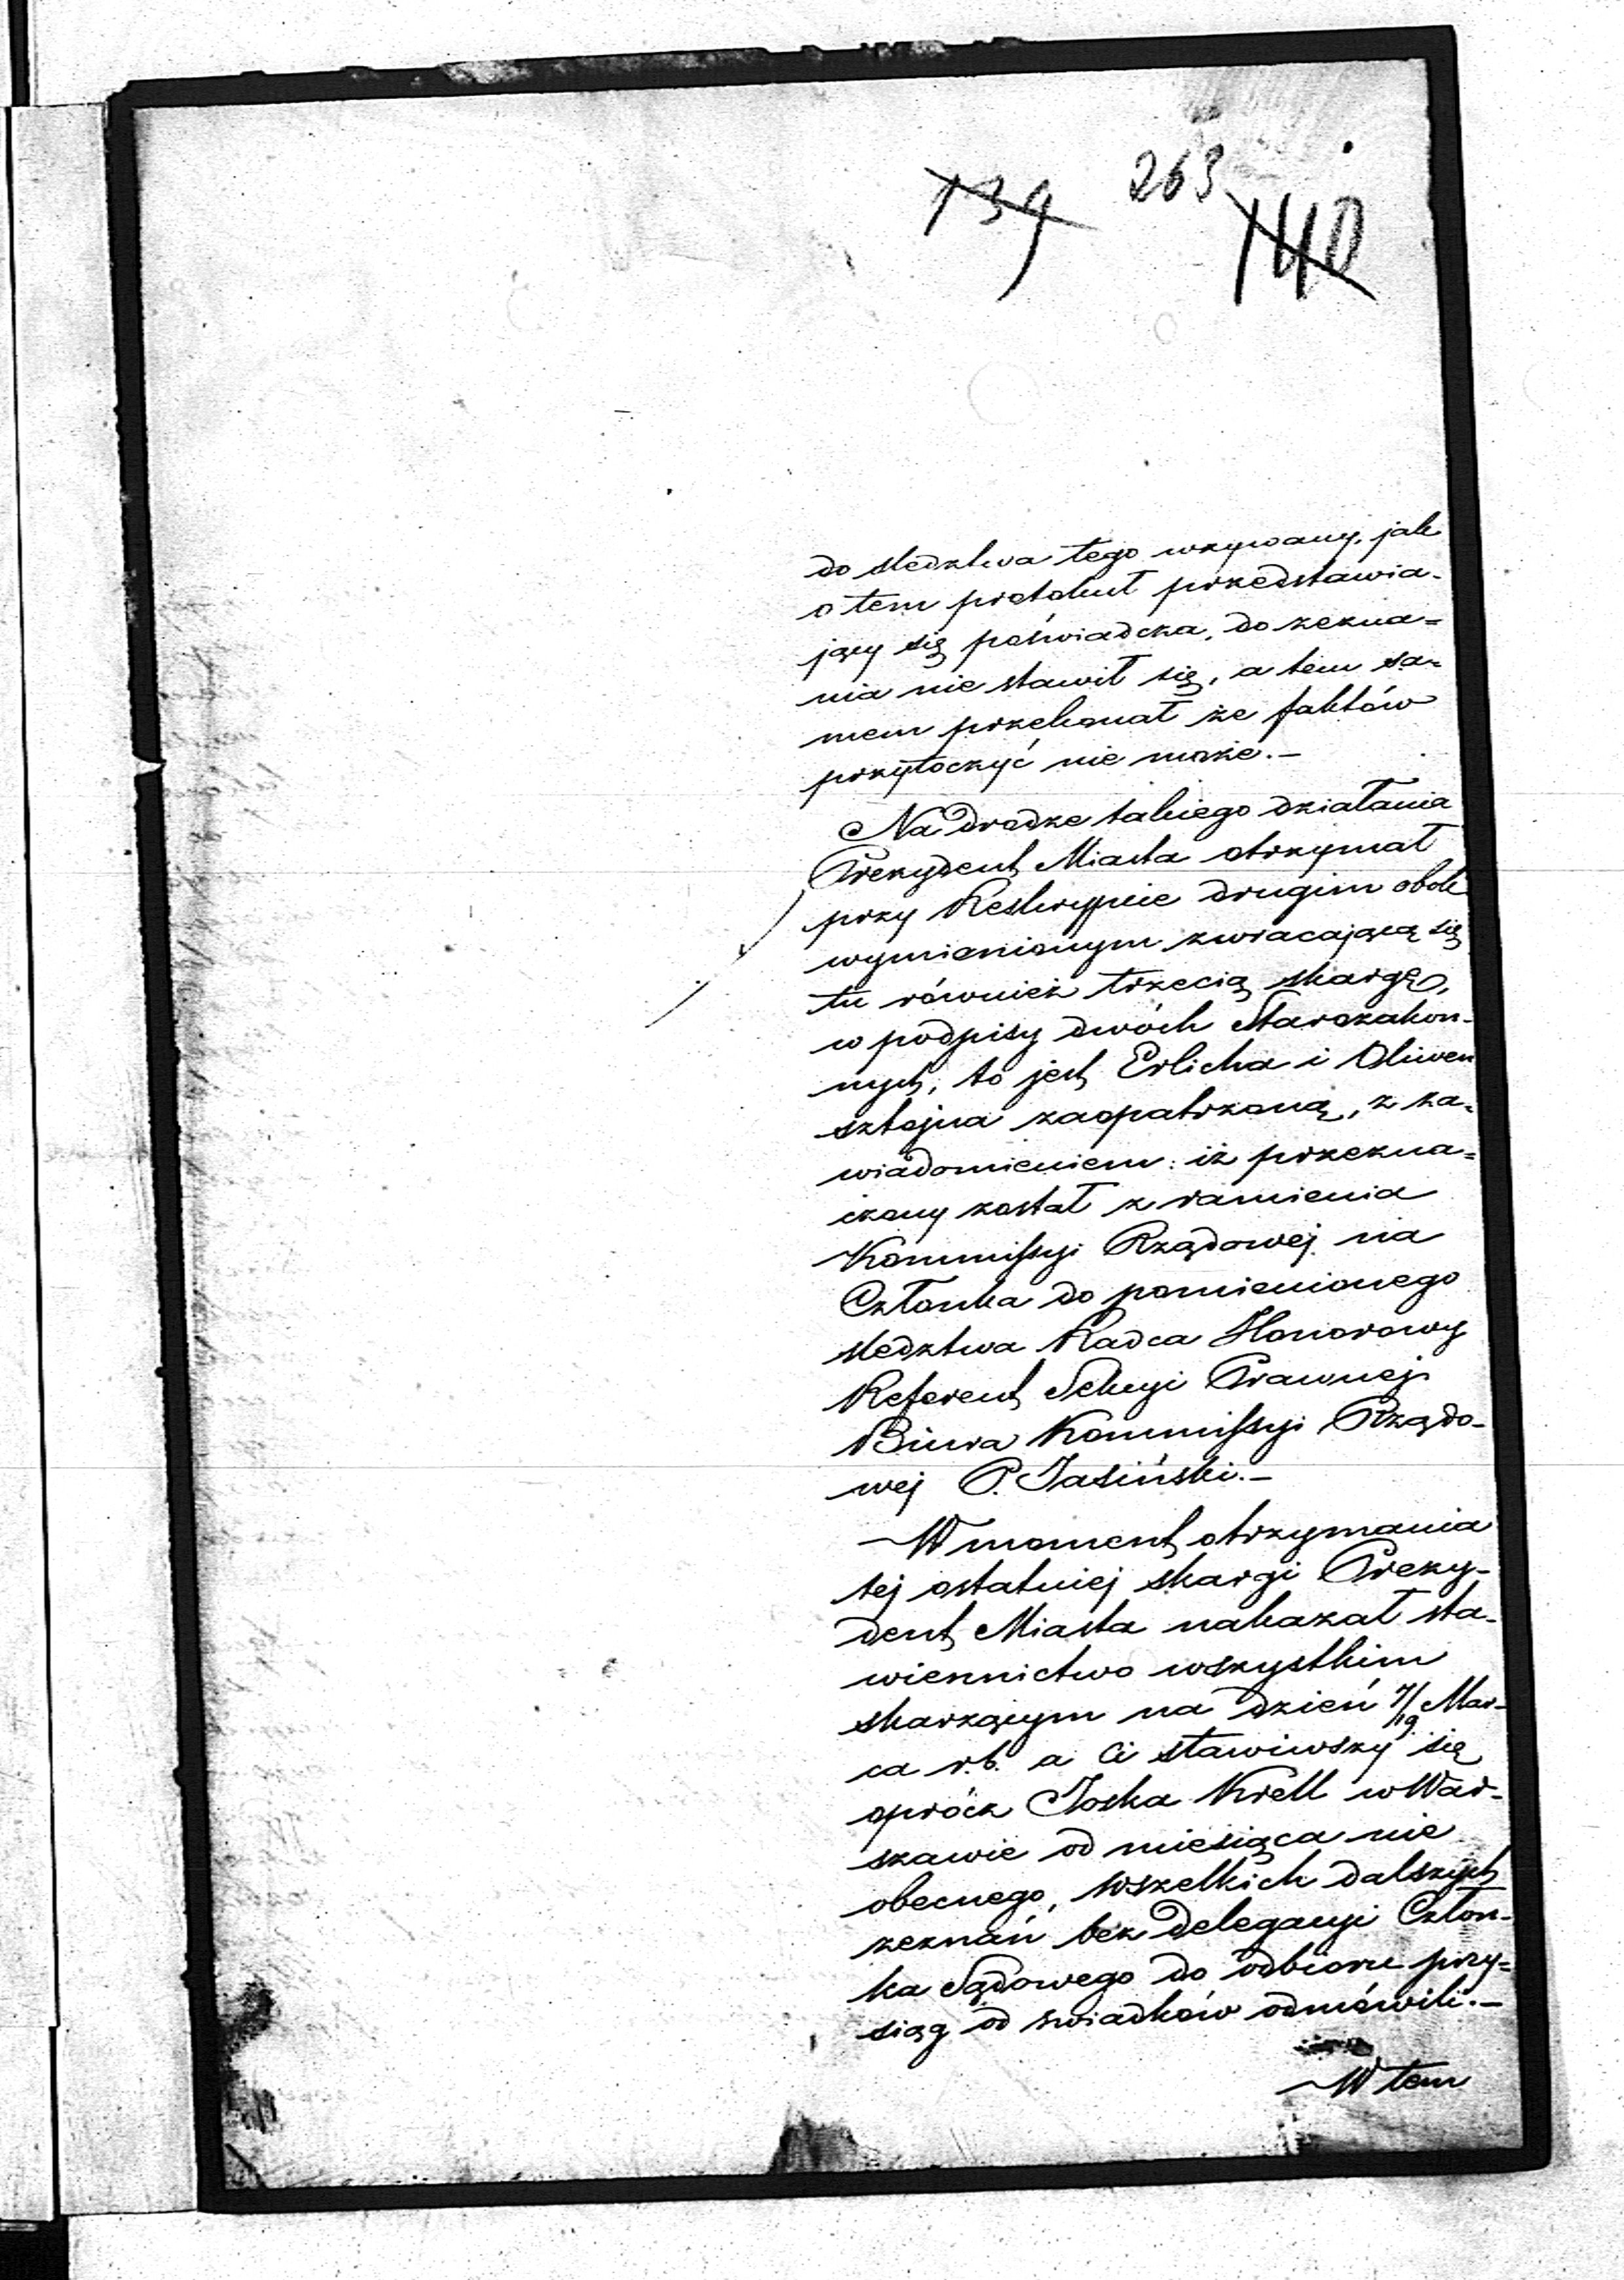 139 263 140
do sledztwa tego wzywany, jak
o tem protokuł przedstawia-
jący się poświadcza, do zezna=
nia nie stawił się, a tem sa-
mem przekonał że faktów
przytoczyć nie może.—
Na drodze takiego działania
Prezydent Miasta otrzymał
przy Reskrypcie drugim obok
wymienionym zwracającą się
tu również trzecią skargę,
w podpisy dwóch Starozakon-
nych, to jest Erlicha i Oliwen
sztejna zaopatrzoną, z za=
wiadomieniem: iż przezna=
czony został z ramienia
Kommissyi Rządowej na
Członka do pomienionego
sledztwa Radca Honorowy
Referent Sekcyi Prawnej
Biura Kommissyi Rządo-
wej P. Jasiński.—
W moment otrzymania
tej ostatniej skargi Prezy-
dent Miasta nakazał sta-
wiennictwo wszystkim
skarżącym na dzień 7/19 Mar-
ca r.b. a Ci stawiwszy się
oprócz Joska Krell w War-
szawie od miesiąca nie
obecnego, wszelkich dalszych
zeznań bez delegacyi Człon-
ka Sądowego do odbioru przy=
siąg od swiadków odmówili.—
W tem